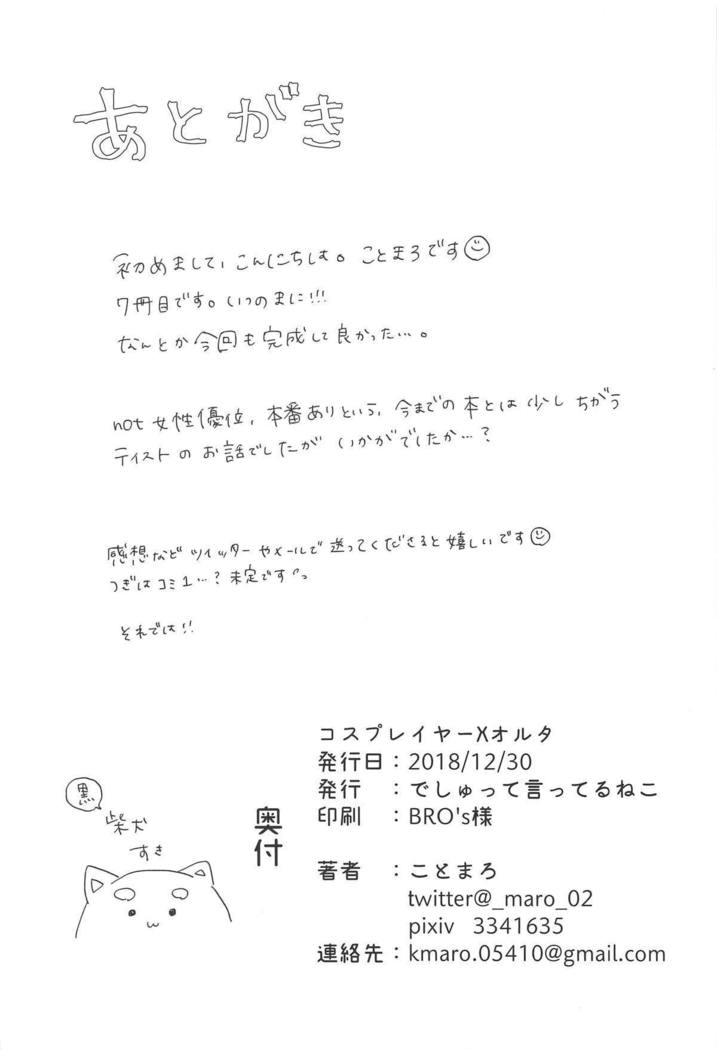 あとがき
初めまして、こんにちは。ことまろです
7冊目です。いつのまに!!!
なんとか今回も完成して良かった…。
not 女性優位、本番ありという、今までの本とは少しちがう
テイストのお話でしたがいかがでしたか…?
感想などツイッターやメールで送ってくださると嬉しいです
つぎはコミ1…?未定です
それでは!!
コスプレイヤーXオルタ
発行日:2018/12/30
発行 :でしゅって言ってるねこ
印刷 :BRO's様
奥付
著者 :ことまろ
twitter@_maro_02
pixiv 3341635
連絡先:kmaro.05410@gmail.com
黒
柴犬
すき